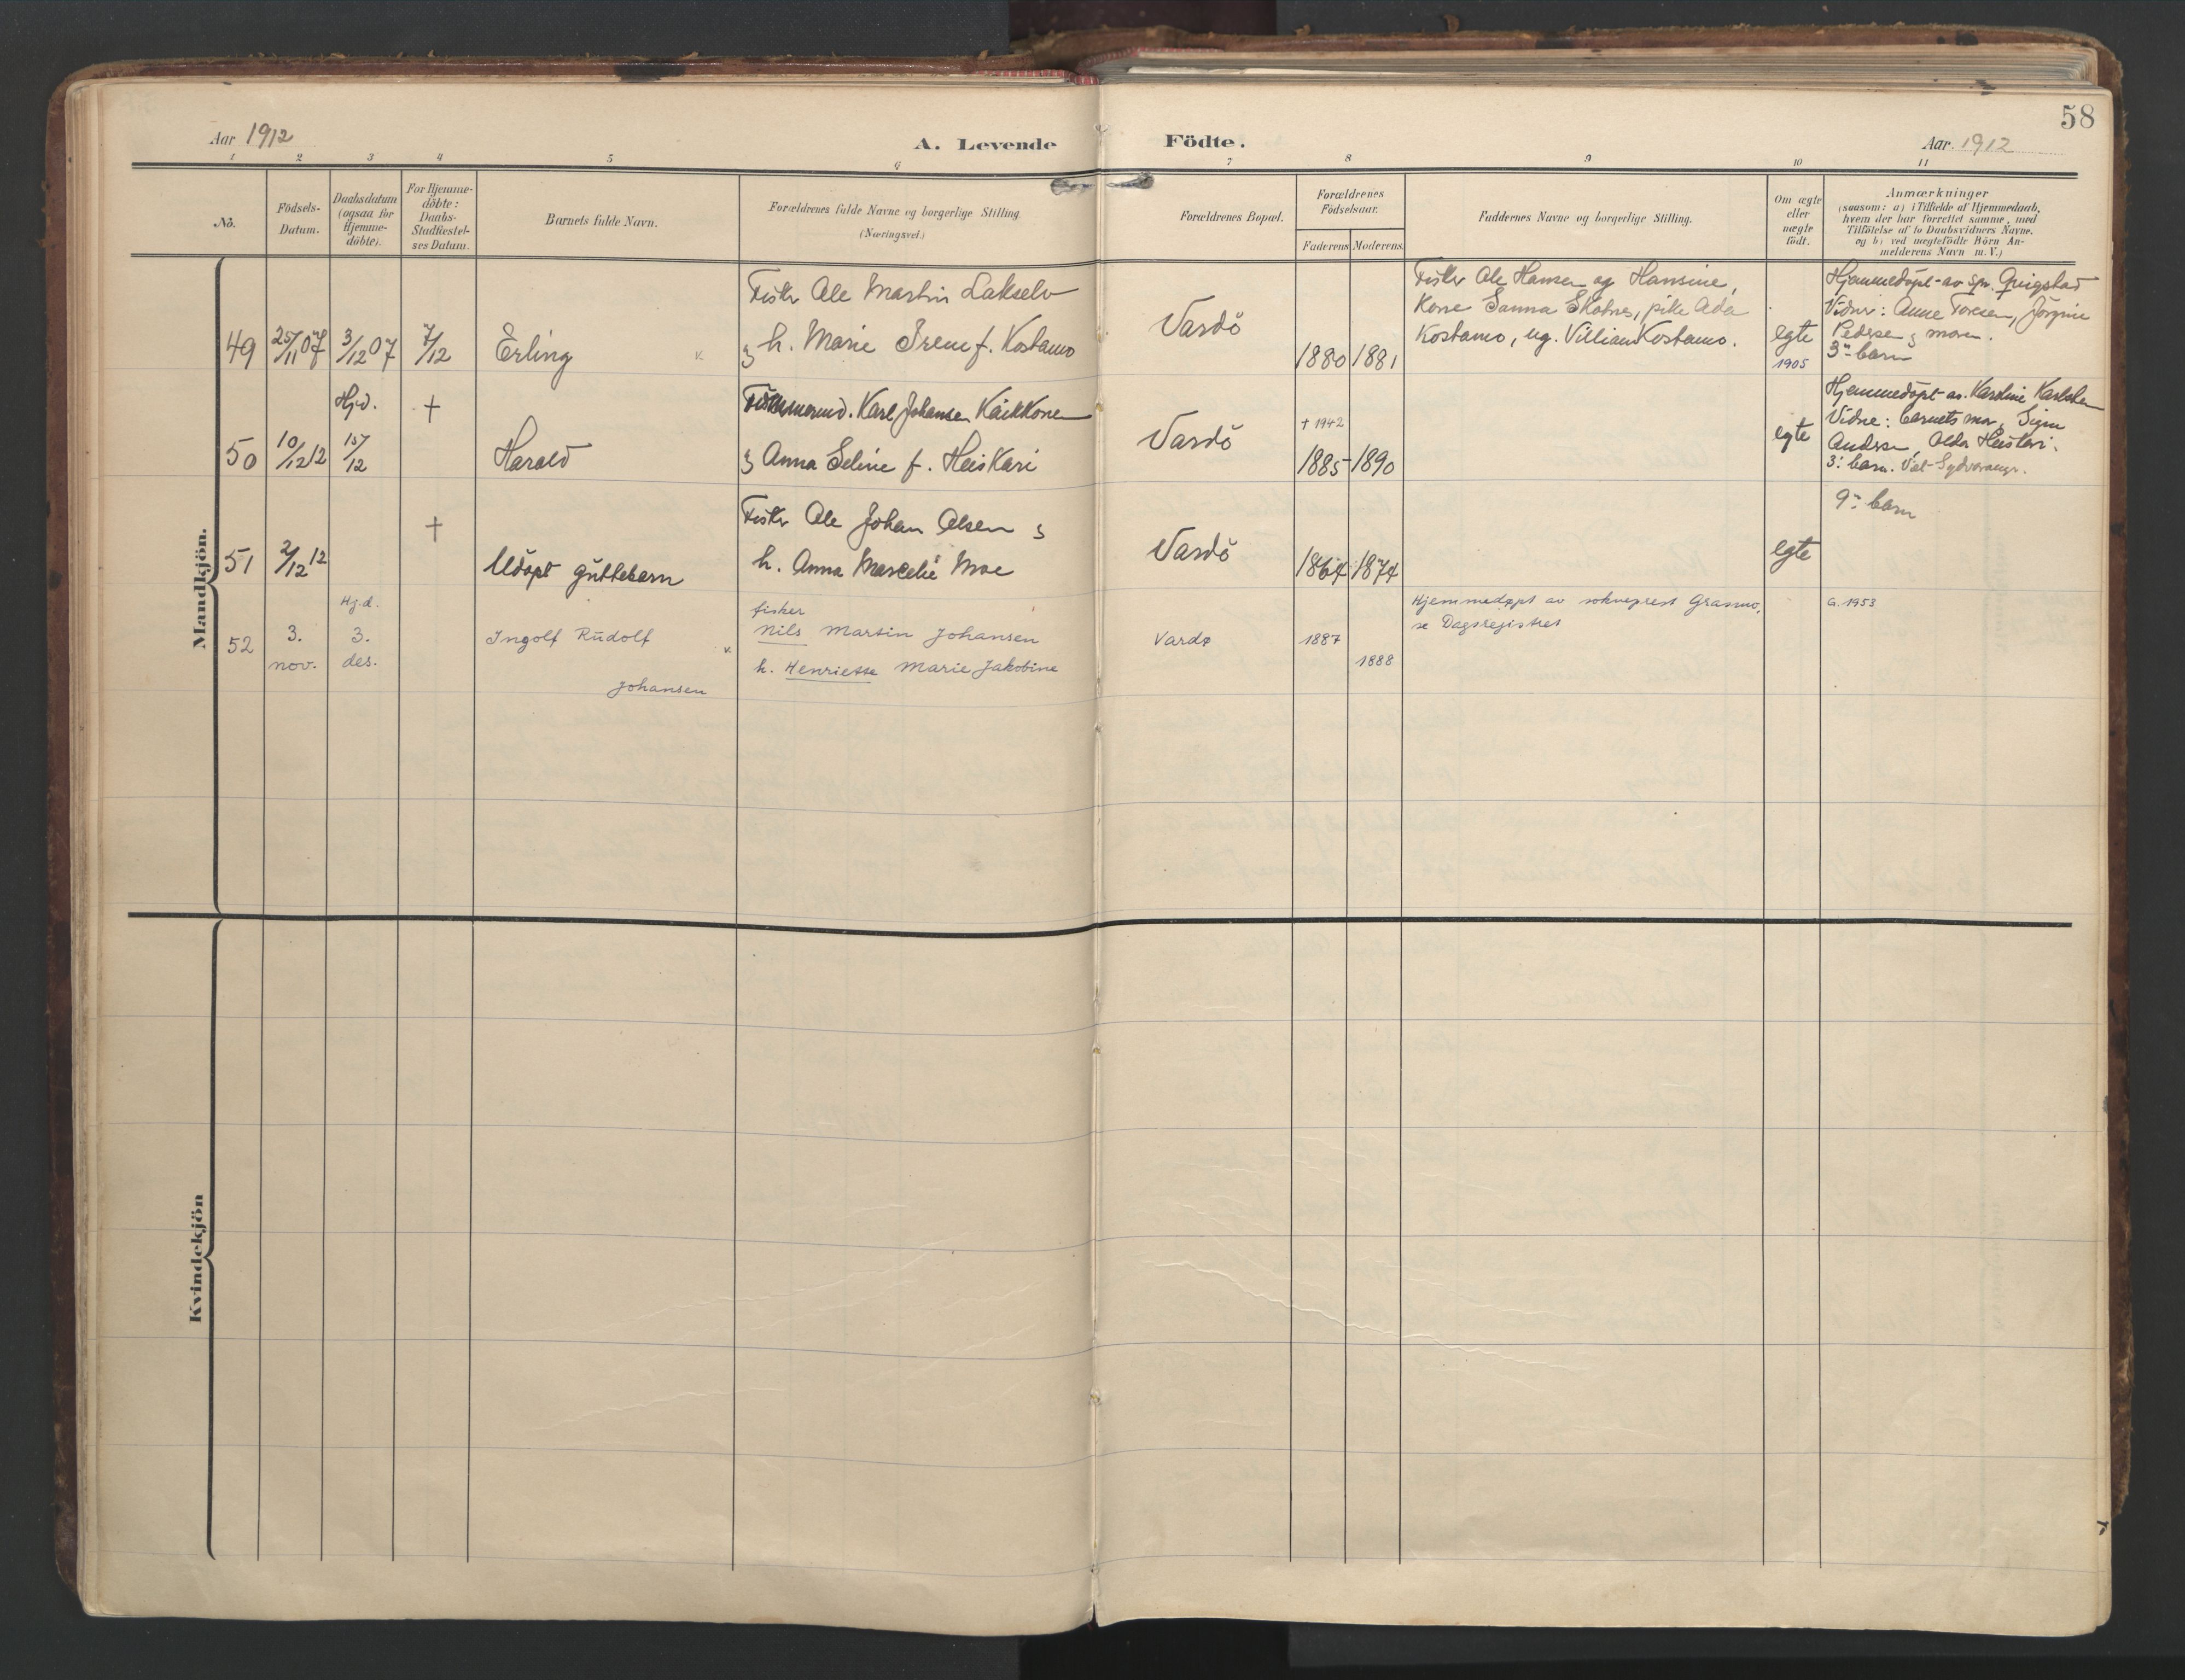 58
Aar 1912
A. Levende Födte.
Aar. 1912
1 2 3 4 5 6 7 8 9 10 11
No.
Födsels-
Datum.
Daabsdatum
(ogsaa for
Hjemme-
döbte).
For Hjemme-
döbte:
Daabs-
Stadfæstel-
ses Datum.
Barnets fulde Navn.
Forældrenes fulde Navne og borgerlige Stilling.
(Næringsvei.)
Forældrenes Bopæl.
Forældrenes
Födselsaar.
Faderens Moderens.
Faddernes Navne og borgerlige Stilling.
Om ægte
eller
uægte
födt.
Anmærkninger
(saasom: a) i Tilfælde af Hjemmedaab,
hvem der har forrettet samme, med
Tilföielse af to Daabsvidners Navne.
og b) ved uægtefödte Börn An-
melderens Navn m. V.)
Mandkjön.
49
25/11 07
3/12 07
7/12
Erling
v.
Fisker Ole Martin Lakselv
& h. Marie Irene f. Kostamo
Vardö
1880 1881
Fisker Ole Hansen og Hansine,
Kone Sanna Skotnes, pike Ada
Kostamo, ug. Villiam Kostamo.
egte
1905
Hjemmedöpt av spr. Qvigstad
Vidner: Anne Toresen, Jörgine
Pedersen & moren.
3" barn
50
10/12 12
Hjd.
15/12
+
Harald
Karl Johansen Kaikkonen
& Anna Seline f. Heiskari
Vardö
+ 1942
1885 1890
egte
Hjemmedöpt av. Karoline Karlsen
Vidne: barnets mor, Signe
Andrsen, Alda Heiskari.
3: barn. Vat Sydvaranger.
51
2/12 12
+
Udöpt guttebarn
Fisker Ole Johan Olsen &
h. Anna Marcelie Moe
Vardö
1864 1874
egte
9" barn
52
3.
nov.
Hj.d.
3.
des.
Ingolf Rudolf
Johansen
v.
fisker
Nils Martin Johansen
h. Henriette Marie Jakobine
Vardø
1887
1888
Hjemmedøpt av sokneprest Grasmo,
se Dagsregistret
G. 1953
Kvindekjön